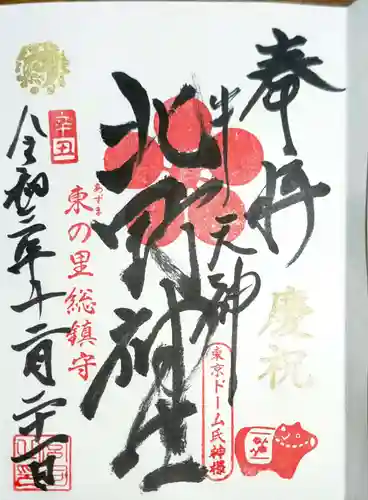 奉拝
慶祝
牛天神
東京ドーム氏神様
北野神社
あずま
東の里総鎮守
辛丑
令和三年十二月二十一日